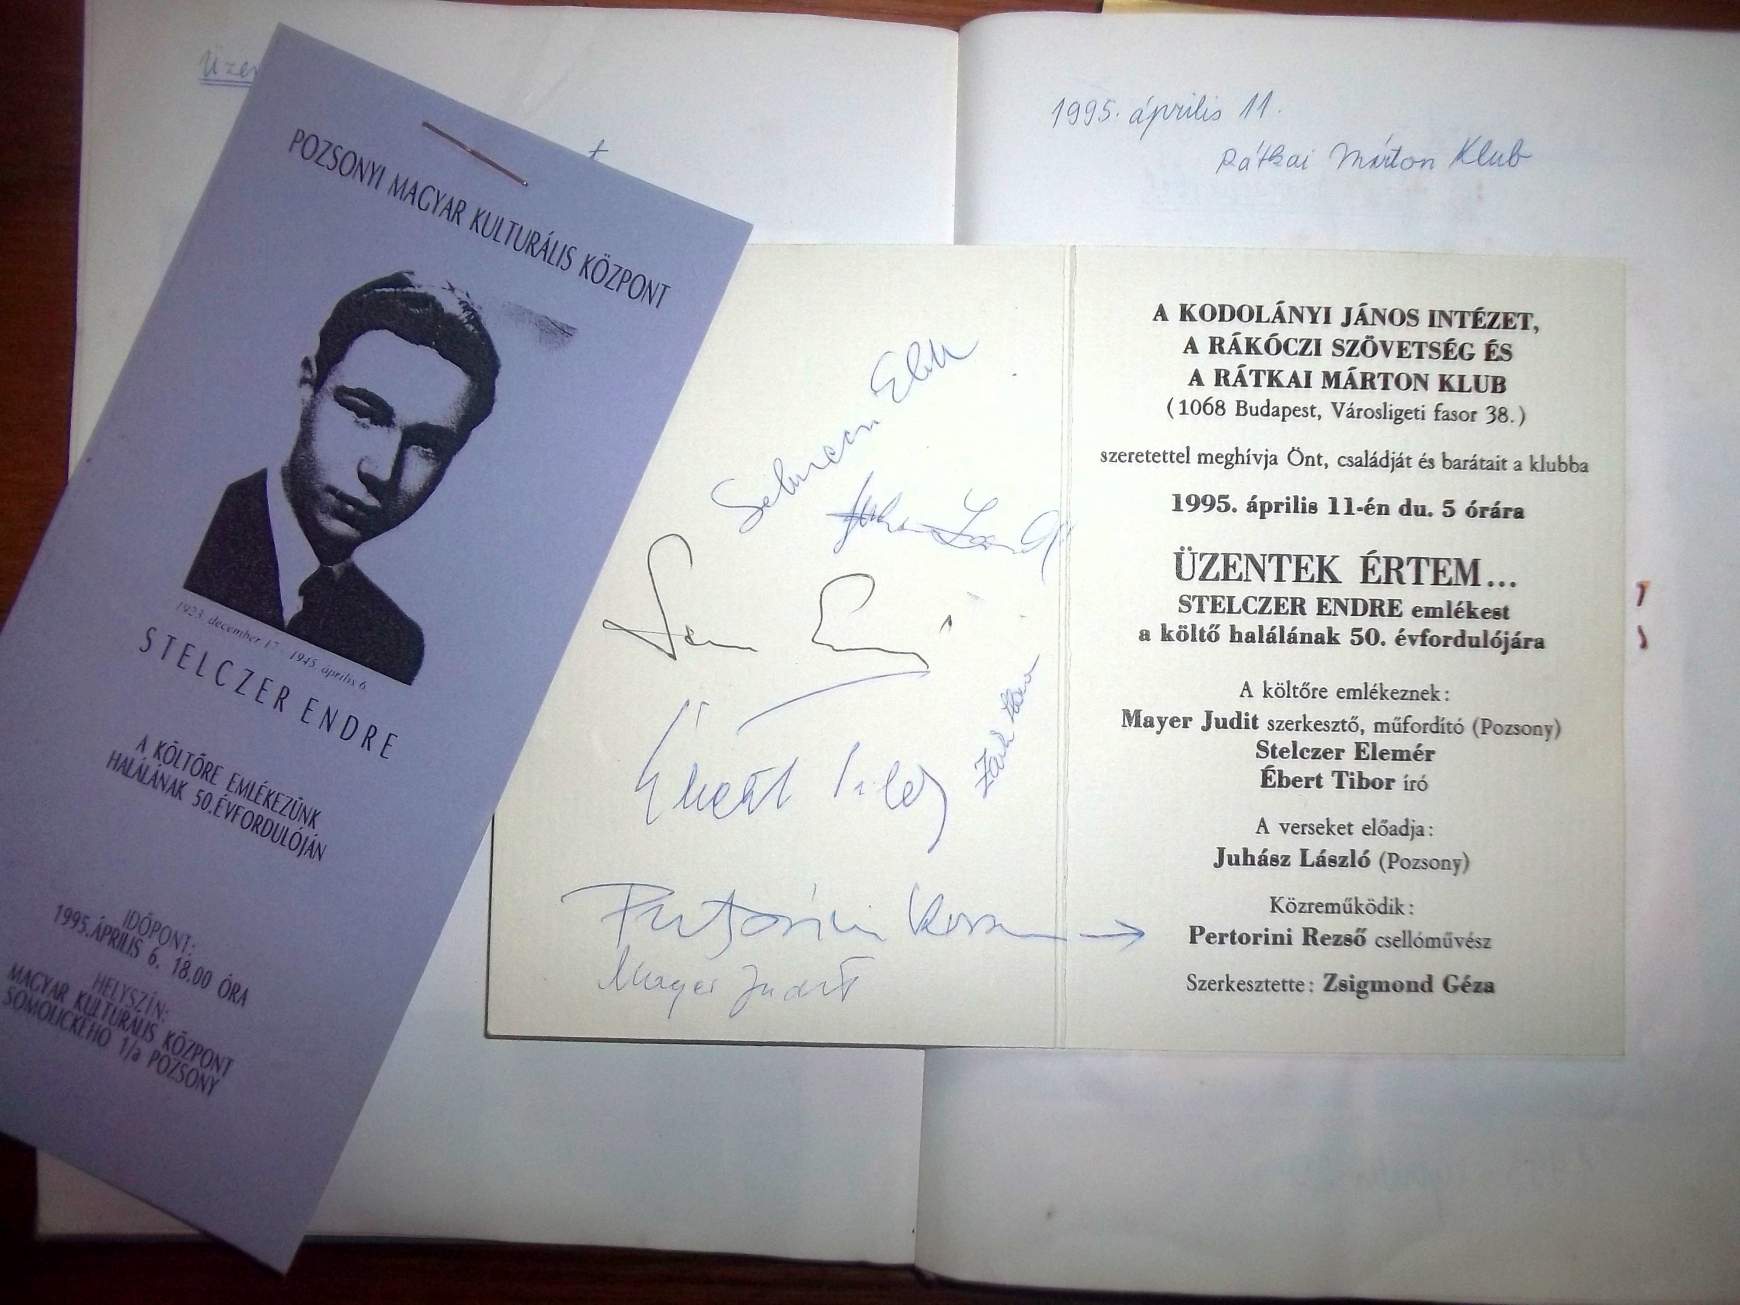 1995. április 11.
Rátkai Márton Klub
POZSONYI MAGYAR KULTURÁLIS KÖZPONT
1923. december 17. - 1945. április 6.
STELCZER ENDRE
A KÖLTŐRE EMLÉKEZÜNK
HALÁLÁNAK 50.ÉVFORDULÓJÁN
IDŐPONT:
1995.ÁPRILIS 6. 18.00 ÓRA
HELYSZÍN:
MAGYAR KULTURÁLIS KÖZPONT
SOMOLICKÉHO 1/a POZSONY
Selmeczi Elek
Ébert Tibor
Pertorini Rezső
Mayer Judit
A KODOLÁNYI JÁNOS INTÉZET,
A RÁKÓCZI SZÖVETSÉG ÉS
A RÁTKAI MÁRTON KLUB
(1068 Budapest, Városligeti fasor 38.)
szeretettel meghívja Önt, családját és barátait a klubba
1995. április 11-én du. 5 órára
ÜZENTEK ÉRTEM...
STELCZER ENDRE emlékest
a költő halálának 50. évfordulójára
A költőre emlékeznek:
Mayer Judit szerkesztő, műfordító (Pozsony)
Stelczer Elemér
Ébert Tibor író
A verseket előadja:
Juhász László (Pozsony)
Közreműködik:
Pertorini Rezső csellóművész
Szerkesztette: Zsigmond Géza